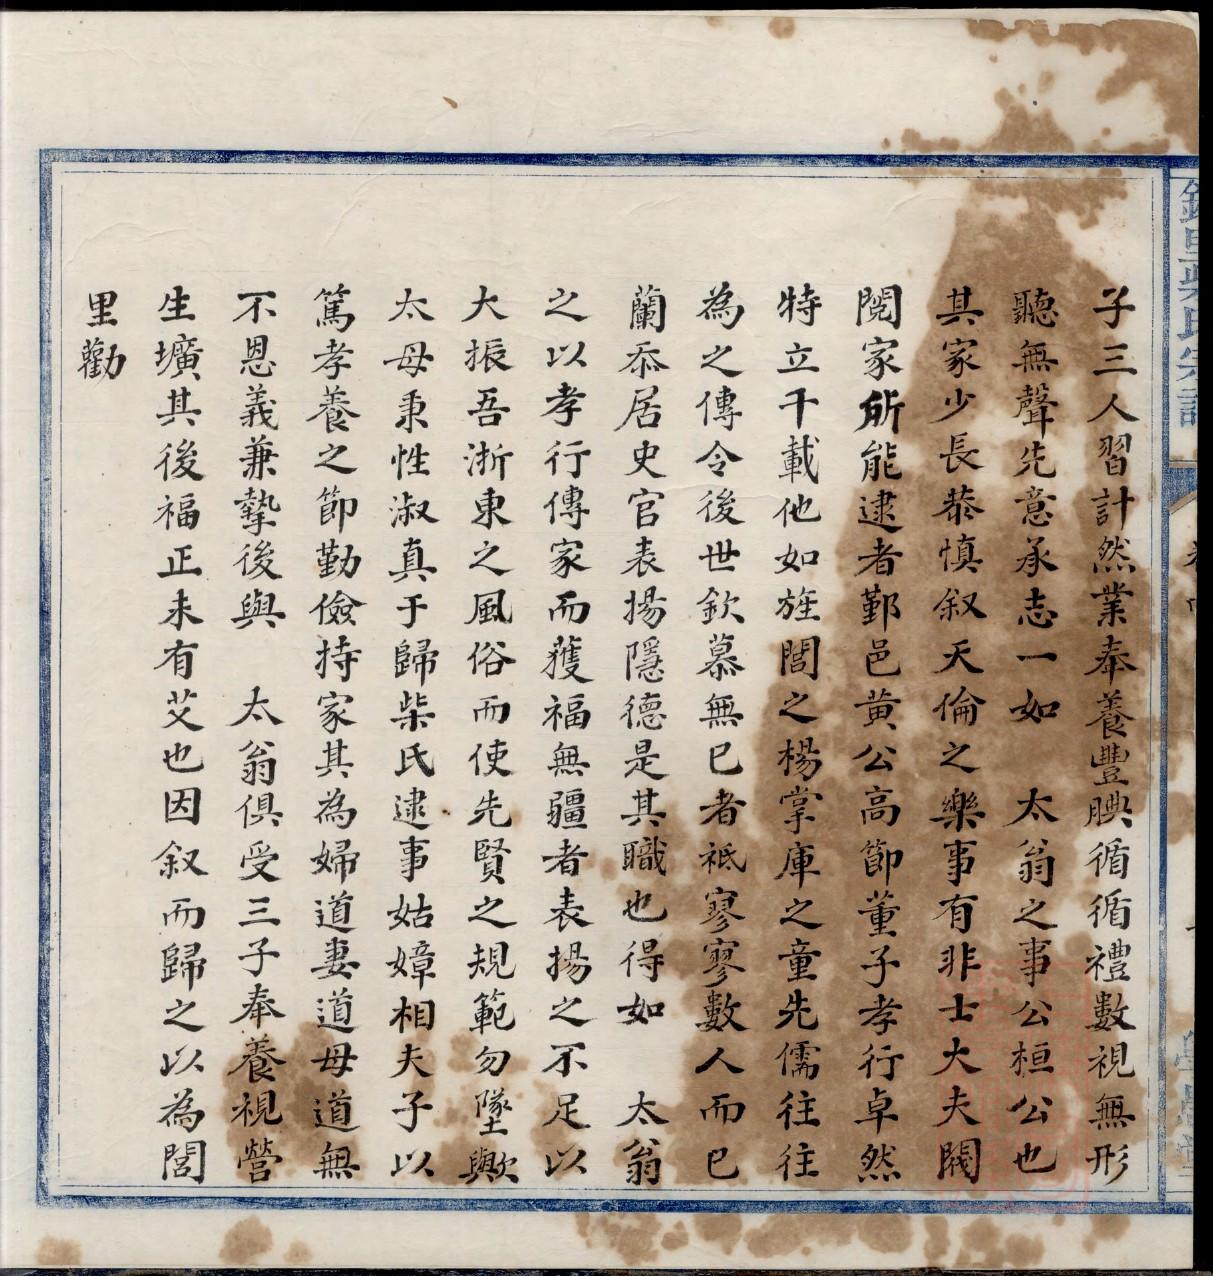 子三人習計然業奉養豐腆循循禮數視無形
聽無聲先意承志一如　太翁之事公桓公也
其家少長恭慎叙天倫之樂事有非士大夫閥
閱家所能逮者鄞邑黃公高節董子孝行卓然
特立千載他如旌閭之楊掌庫之童先儒往往
為之傳令後世欽慕無已者祗寥寥數人而已
蘭忝居史官表揚隱德是其職也得如　太翁
之以孝行傳家而獲福無疆者表揚之不足以
大振吾浙東之風俗而使先賢之規範勿墜歟
太母秉性淑真于歸柴氏逮事姑嫜相夫子以
篤孝養之節勤儉持家其為婦道妻道母道無
不恩義兼摯後與　太翁俱受三子奉養視營
生壙其後福正未有艾也因叙而歸之以為閭
里勸